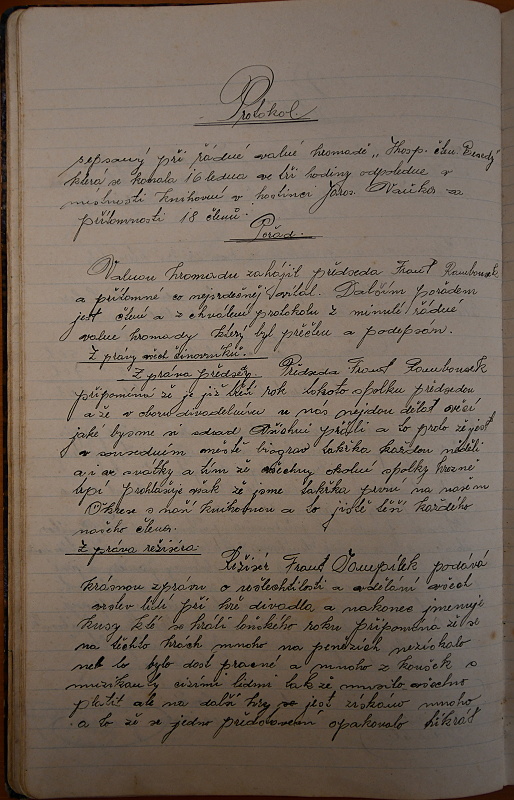 Protokol.
sepsaný při řádné valné hromadě „Hosp. čten. Besedy"
která se konala 16 ledna ve tři hodiny odpoledne v
místnosti knihovní v hostinci Jaros. Vaňka za
přítomnosti 18 členů.
Pořad.
Valnou hromadu zahájil předseda Frant Rambousek
a přítomné co nejsrdečněj uvítal. Dalším pořadem
jest čtení a z chválení protokolu z minulé řádné
valné hromady který byl přečten a podepsán.
Z právy všech činovníků.
Z práva předsedy. Předseda Frant Rambousek
připomíná že je již třetí rok tohoto spolku předsedou
a že v oboru divadelnímu u nás nejdou dělat věci
jaké bysme si snad všichni přáli a to proto že jest
v sousedním městě biograf takřka každou neděli
a i ve svátky a tím že všechny okolní spolky hrozně
trpí prohlašuje však že jsme takřka první na našem
Okrese s naší knihovnou a to jistě těší každého
našeho člena.
Z práva režiséra: Režisér Frant podává
krásnou zprávu o ušlechtilosti a vdělání všech
vrstev lidu při hře divadla a nakonec jmenuje
kusy kté se hráli loňského roku připomíná že se
na těchto hrách mnoho na penězích nezískalo
neb to bylo dost pracné a mnoho z kousek s
muzikanty cizími lidmi takže musilo všechno
platit ale na další hry se jest získano mnoho
a to že se jedno představení opakovalo